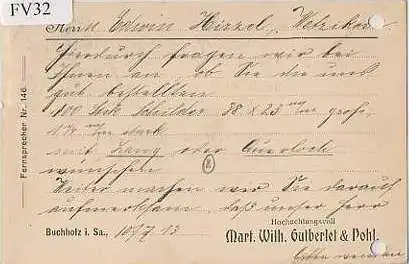 FV32
Herrn Edwin Hirzel, Wetzikon
Hierdurch fragen wir bei
Ihnen an, ob Sie die mit
gütl. bestellten
100 Stck Schilder 38 x 23 m/m groß,
1 1/4 m/m stark
mit Lang oder Querloch
wünschen
Weiter machen wir Sie darauf
aufmerksam, daß unser Herr
Fernsprecher Nr. 146.
Hochachtungsvoll
Buchholz i. Sa., 10/7 13
Mart. Wilh. Gutberlet & Pohl.
bitte wenden